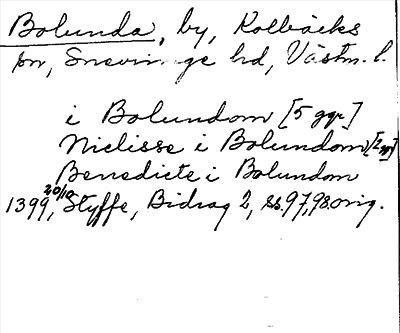 Bolunda, by, Kolbäcks
sn, Snevringe hd, Västm. l.
i Bolundom [5 ggr]
Niclisse i Bolundom [2 ggr]
Benedicte i Bolundom
1399 20/10, Styffe, Bidrag 2, ss. 97, 98. orig.